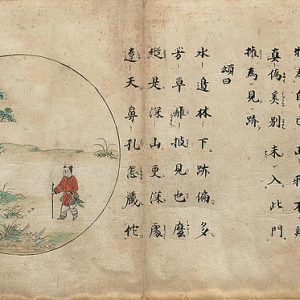 物為自己正邪不辨
真偽奚別未入此門
權為見跡
頌曰
水邊林下跡偏多
芳草離披見也麼
縱是深山更深處
遼天鼻孔怎藏佗